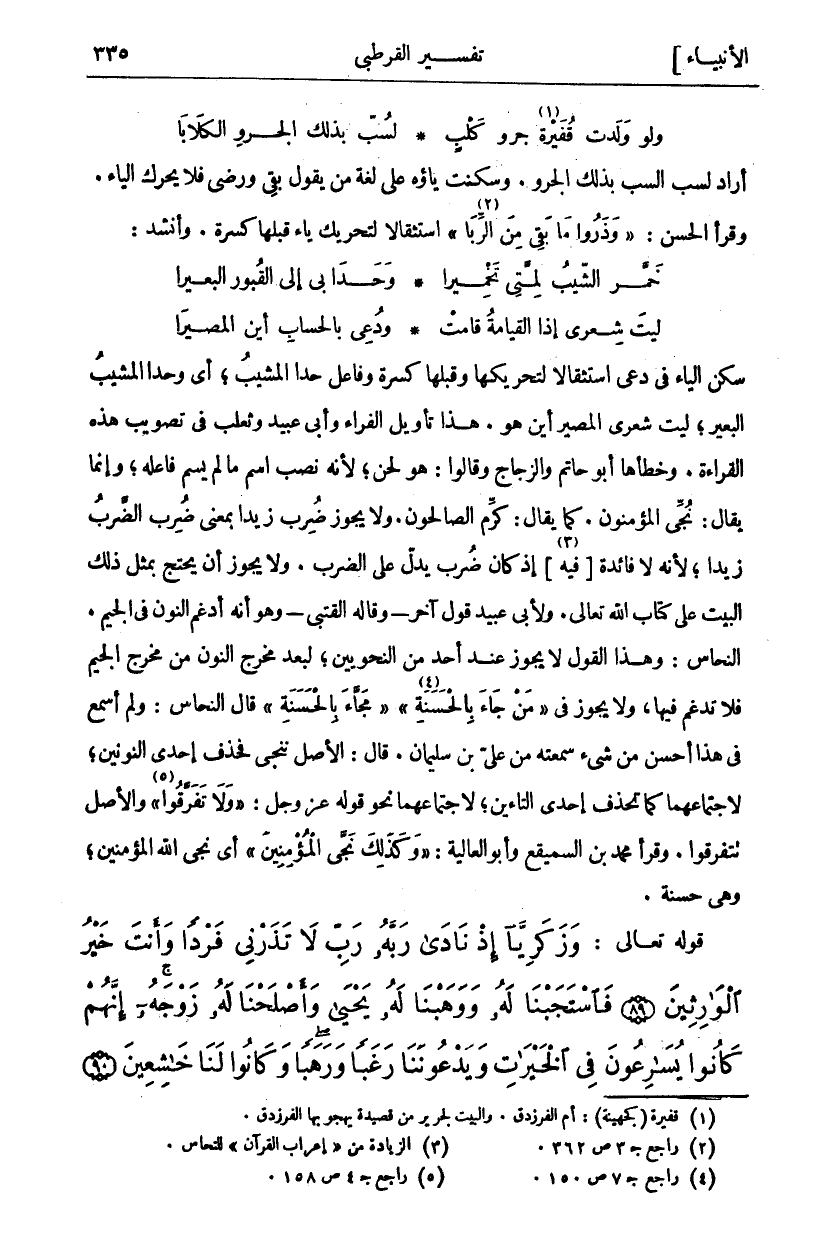 الأنبياء ]
تفسير القرطبى
٣٣٥
ولو وَلَدت قُفَيْرَة (١) جرو كَلْبٍ * لسُبّ بذلك الجروِ الكلَابَا
أراد لسب السب بذلك الجرو . وسكنت ياؤه على لغة من يقول بقِى ورضى فلا يحرك الياء .
وقرأ الحسن : « وَذَرُوا مَا بَقِى مِنَ الرِّبَا (٢) » استثقالا لتحريك ياء قبلها كسرة . وأنشد :
خَمَّر الشّيبُ لِمـَّتِى تَخْمِيرا * وَحَدَا بى إلى القُبور البعيرا
ليتَ شِعرى إذا القيامةُ قامتْ * ودُعِى بالحسابِ أين المصيرَا
سكن الياء فى دعى استثقالا لتحريكها وقبلها كسرة وفاعل حدا المشيبُ ؛ أى وحدا المشيبُ
البعير ؛ ليت شعرى المصير أين هو . هذا تأويل الفراء وأبى عبيد وثعلب فى تصويب هذه
القراءة . وخطأها أبو حاتم والزجاج وقالوا : هو لحن ؛ لأنه نصب اسم ما لم يسم فاعله ؛ وإنما
يقال : نُجِّىَ المؤمنون . كما يقال : كرِّم الصالحون . ولا يجوز ضُرِب زيدا بمعنى ضُرِب الضَّربُ
زيدا ؛ لأنه لا فائدة [ فيه (٣) ] إذ كان ضُرب يدلّ على الضرب . ولا يجوز أن يحتج بمثل ذلك
البيت على كتاب الله تعالى . ولأبى عبيد قول آخر — وقاله القتبى — وهو أنه أدغم النون فى الجيم .
النحاس : وهذا القول لا يجوز عند أحد من النحويين ؛ لبعد مخرج النون من مخرج الجيم
فلا تدغم فيها ، ولا يجوز فى « مَنْ جَاءَ بِالْحَسَنَةِ (٤) » « مَجَّاءَ بِالْحَسَنَةِ » قال النحاس : ولم أسمع
فى هذا أحسن من شىء سمعته من علىّ بن سليمان . قال : الأصل ننجى فحذف إحدى النونين ؛
لاجتماعهما كما تحذف إحدى التاءين ؛ لاجتماعهما نحو قوله عز وجل : «وَلَا تَفَرَّقُوا (٥)» والأصل
تتفرقوا . وقرأ محمد بن السميقع وأبو العالية : «وَكَذَلِكَ نَجَّى الْمُؤْمِنِينَ» أى نجى الله المؤمنين ؛
وهى حسنة .
قوله تعالى : وَزَكَرِيَّآ إِذْ نَادَىٰ رَبَّهُۥ رَبِّ لَا تَذَرْنِى فَرْدًا وَأَنتَ خَيْرُ
ٱلْوَٰرِثِينَ ﴿٨٩﴾ فَٱسْتَجَبْنَا لَهُۥ وَوَهَبْنَا لَهُۥ يَحْيَىٰ وَأَصْلَحْنَا لَهُۥ زَوْجَهُۥٓ ۚ إِنَّهُمْ
كَانُوا يُسَٰرِعُونَ فِى ٱلْخَيْرَٰتِ وَيَدْعُونَنَا رَغَبًا وَرَهَبًا ۖ وَكَانُوا لَنَا خَٰشِعِينَ ﴿٩٠﴾
(١) قفيرة (كجهينة) : أم الفرزدق . والبيت لجرير من قصيدة يهجو بها الفرزدق .
(٢) راجع جـ ٣ ص ٣٦٢ . (٣) الزيادة من « إعراب القرآن » للنحاس .
(٤) راجع جـ ٧ ص ١٥٠ . (٥) راجع جـ ٤ ص ١٥٨ .